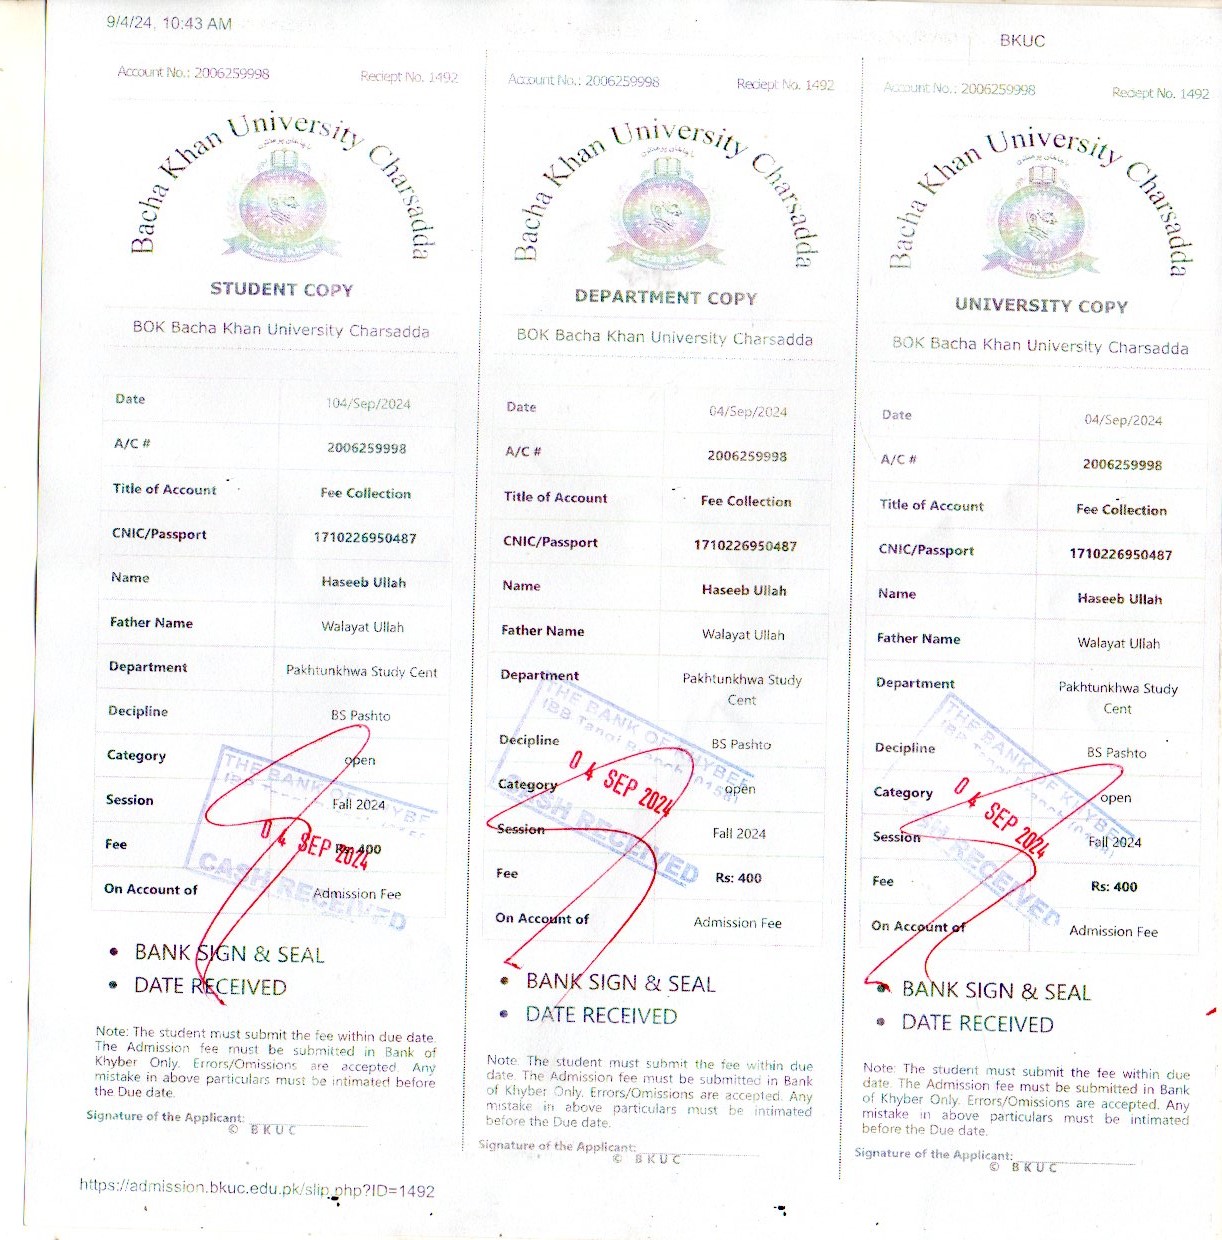 9/4/24, 10:43 AM
BKUC
Account No.: 2006259998
Reciept No. 1492
Bacha Khan University Charsadda
STUDENT COPY
BOK Bacha Khan University Charsadda
Date 104/Sep/2024
A/C # 2006259998
Title of Account Fee Collection
CNIC/Passport 1710226950487
Name Haseeb Ullah
Father Name Walayat Ullah
Department Pakhtunkhwa Study Cent
Decipline BS Pashto
Category open
Session Fall 2024
Fee Rs: 400
On Account of Admission Fee
THE BANK OF KHYBE
04 SEP 2024
CASH RECEIVED
• BANK SIGN & SEAL
• DATE RECEIVED
Note: The student must submit the fee within due date.
The Admission fee must be submitted in Bank of
Khyber Only. Errors/Omissions are accepted. Any
mistake in above particulars must be intimated before
the Due date.
Signature of the Applicant:
© BKUC
Account No.: 2006259998
Reciept No. 1492
Bacha Khan University Charsadda
DEPARTMENT COPY
BOK Bacha Khan University Charsadda
Date 04/Sep/2024
A/C # 2006259998
Title of Account Fee Collection
CNIC/Passport 1710226950487
Name Haseeb Ullah
Father Name Walayat Ullah
Department Pakhtunkhwa Study
Cent
Decipline BS Pashto
Category open
Session Fall 2024
Fee Rs: 400
On Account of Admission Fee
THE BANK OF KHYBE
04 SEP 2024
CASH RECEIVED
• BANK SIGN & SEAL
• DATE RECEIVED
Note: The student must submit the fee within due
date. The Admission fee must be submitted in Bank
of Khyber Only. Errors/Omissions are accepted. Any
mistake in above particulars must be intimated
before the Due date.
Signature of the Applicant:
© BKUC
Account No.: 2006259998
Reciept No. 1492
Bacha Khan University Charsadda
UNIVERSITY COPY
BOK Bacha Khan University Charsadda
Date 04/Sep/2024
A/C # 2006259998
Title of Account Fee Collection
CNIC/Passport 1710226950487
Name Haseeb Ullah
Father Name Walayat Ullah
Department Pakhtunkhwa Study
Cent
Decipline BS Pashto
Category open
Session Fall 2024
Fee Rs: 400
On Account of Admission Fee
THE BANK OF KHYBE
04 SEP 2024
RECEIVED
• BANK SIGN & SEAL
• DATE RECEIVED
Note: The student must submit the fee within due
date. The Admission fee must be submitted in Bank
of Khyber Only. Errors/Omissions are accepted. Any
mistake in above particulars must be intimated
before the Due date.
Signature of the Applicant:
© BKUC
https://admission.bkuc.edu.pk/slip.php?ID=1492